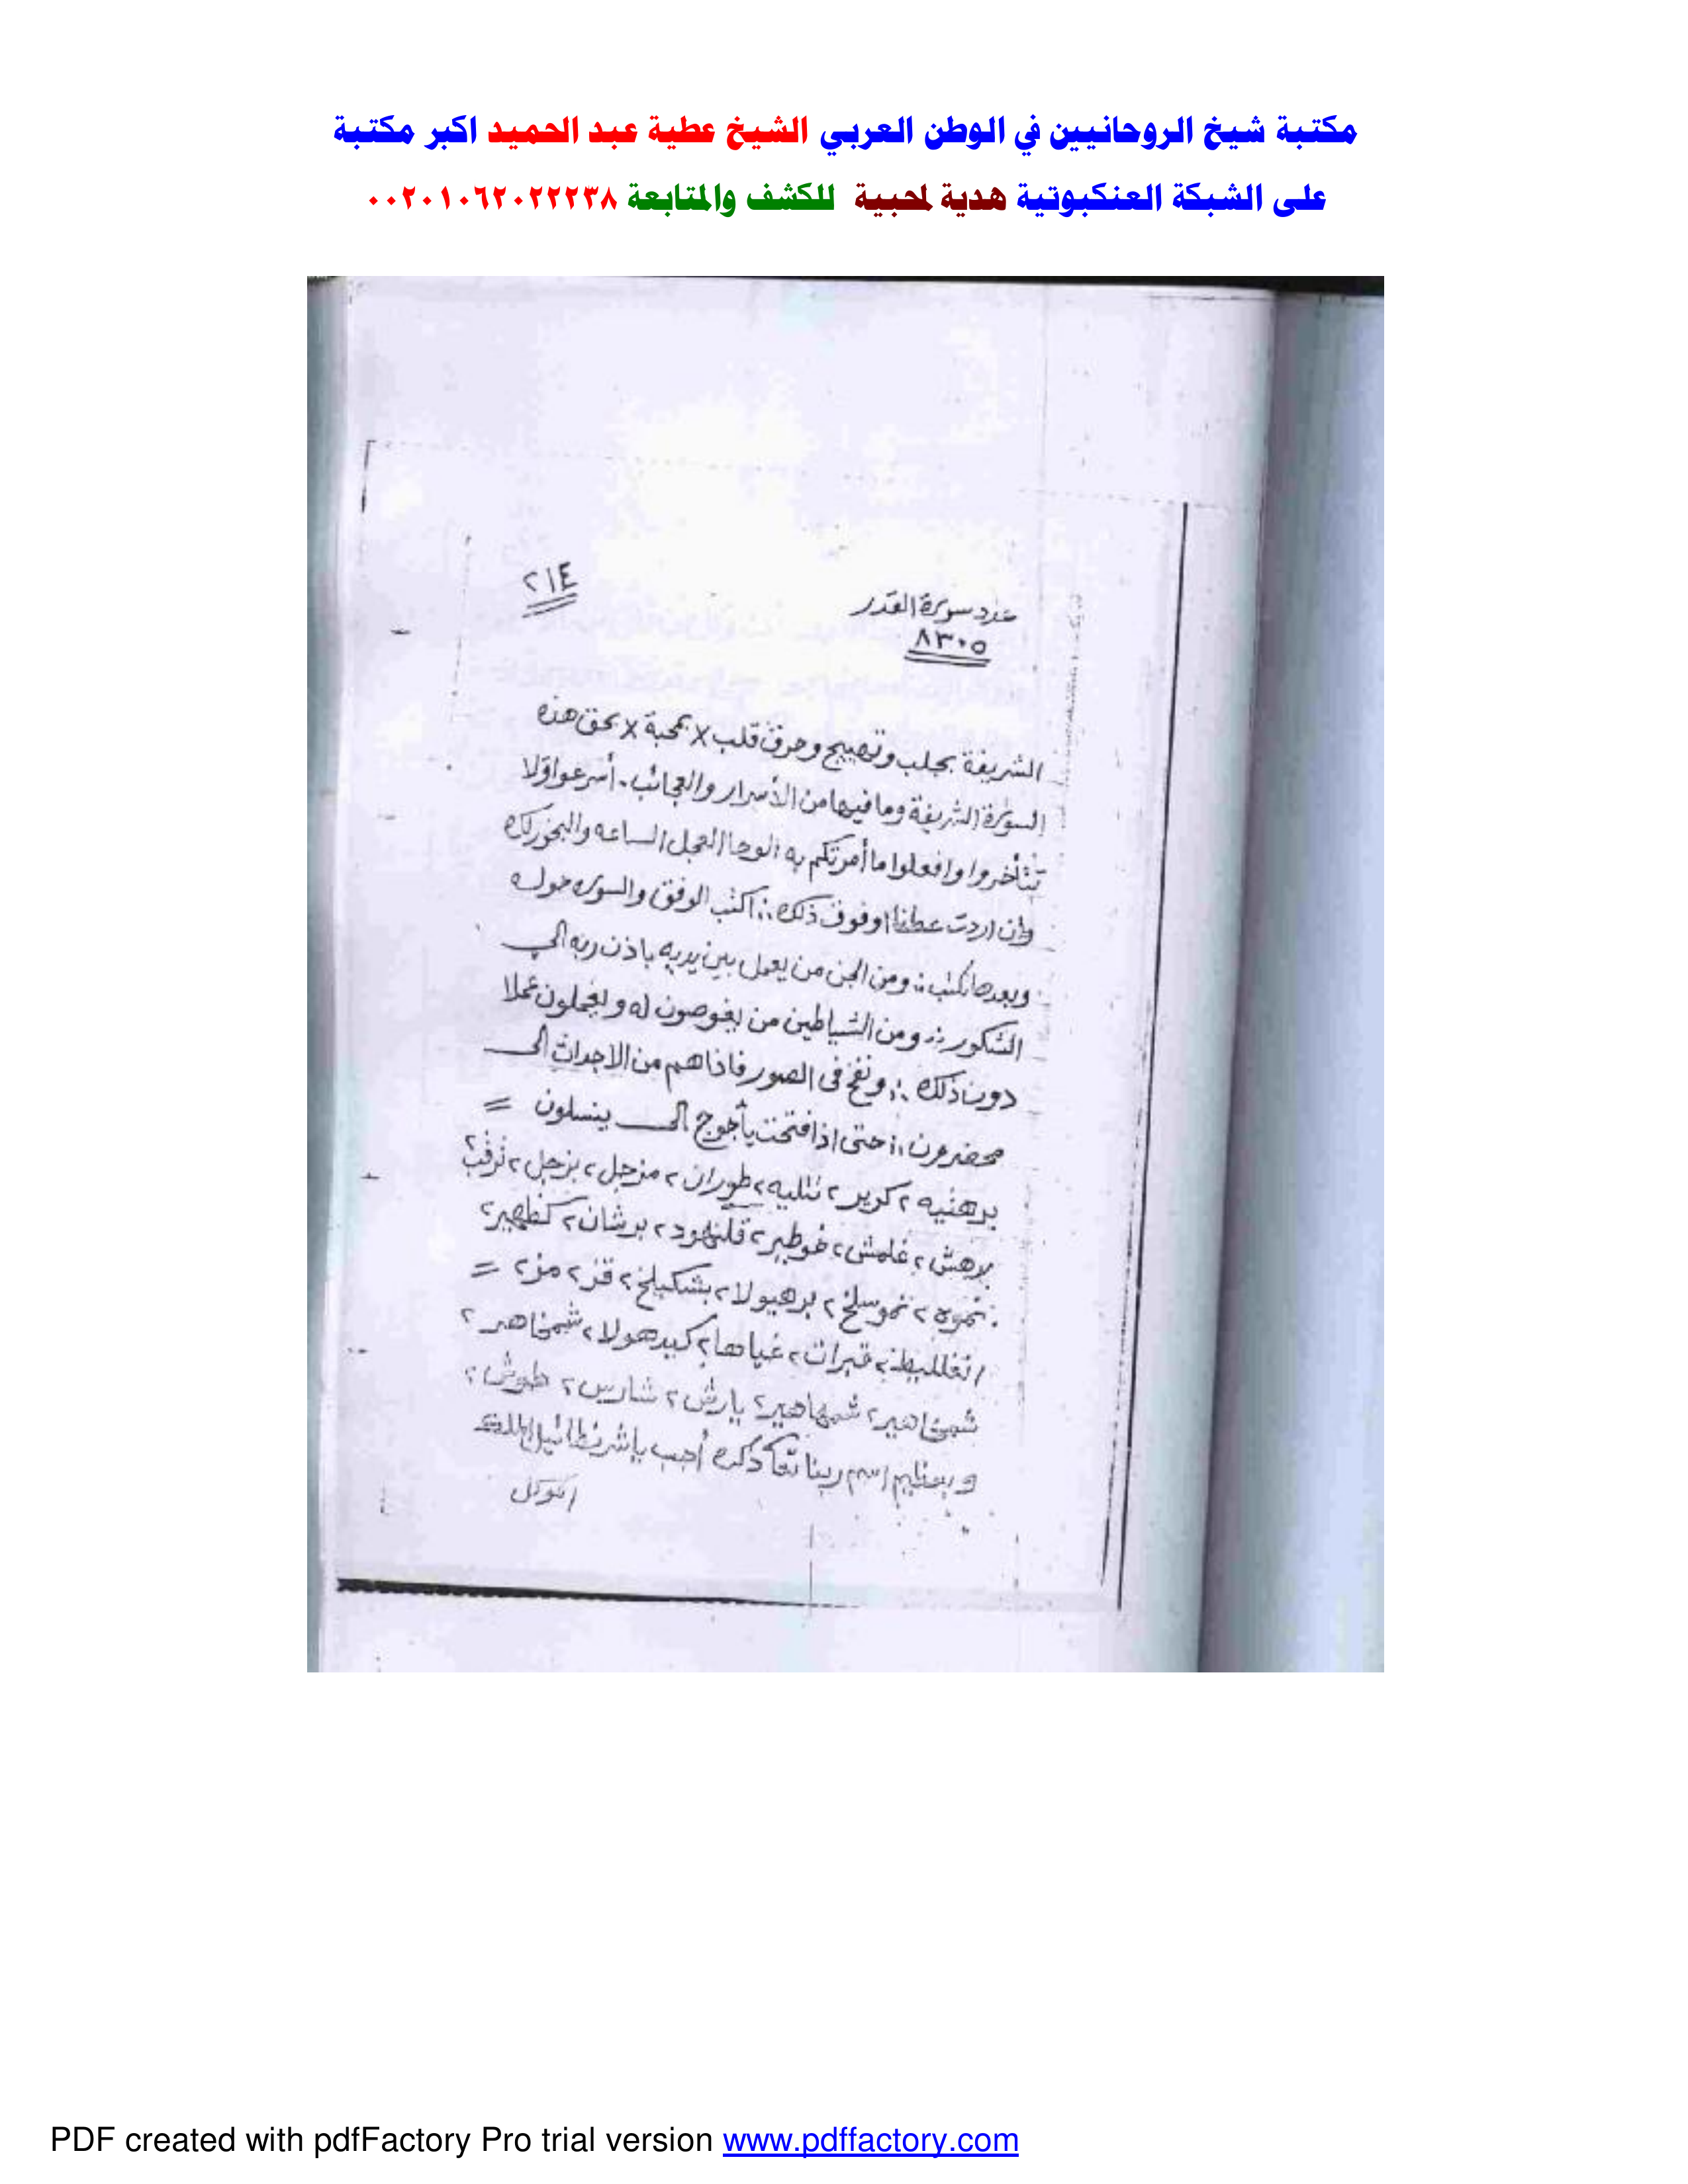 مكتبة شيخ الروحانيين في الوطن العربي الشيخ عطية عبد الحميد اكبر مكتبة
على الشبكة العنكبوتية هدية لمحبية للكشف والمتابعة ٠٠٢٠١٠٦٢٠٢٢٢٣٨
٢١٤
عدد سورة القدر
٨٣٠٥
الشريفة بجلب وتهييج وحرق قلب x بمحبة x بحق هذه
السورة الشريفة وما فيها من الأسرار والعجائب. أسرعوا ولا
تتأخروا وافعلوا ما أمرتكم به الوحا العجل الساعه والبخور لك
وان اردت عطفا او فوق ذلك ؛ اكتب الوفق والسوره حوله
وبعدها تكتب ؛ ومن الجن من يعمل بين يديه باذن ربه الى
الشكور ؛ ومن الشياطين من يغوصون له ويعملون عملا
دون ذلك ؛ ونفخ فى الصور فاذا هم من الاجداث الى
محضرون ؛ حتى اذا فتحت يأجوج الى ينسلون =
برهتيه ٢ كرير ٢ تتليه ٢ طوران ٢ مزجل ٢ بزجل ٢ ترقب ٢
برهش ٢ غلمش ٢ خوطير ٢ قلنهود ٢ برشان ٢ كظهير ٢
نموه ٢ نموسلخ ٢ برهيولا ٢ بشكيلخ ٢ قز ٢ مز ٢ =
انغلليط ٢ قبرات ٢ غياها ٢ كيدهولا ٢ شمخاهر ٢
شمخاهير ٢ شمهاهير ٢ بارش ٢ شارس ٢ طوش ٢
و بعظيم اسم ربنا تعا ذكره أجب يا شرنطائيل الملك
التوكل
PDF created with pdfFactory Pro trial version www.pdffactory.com